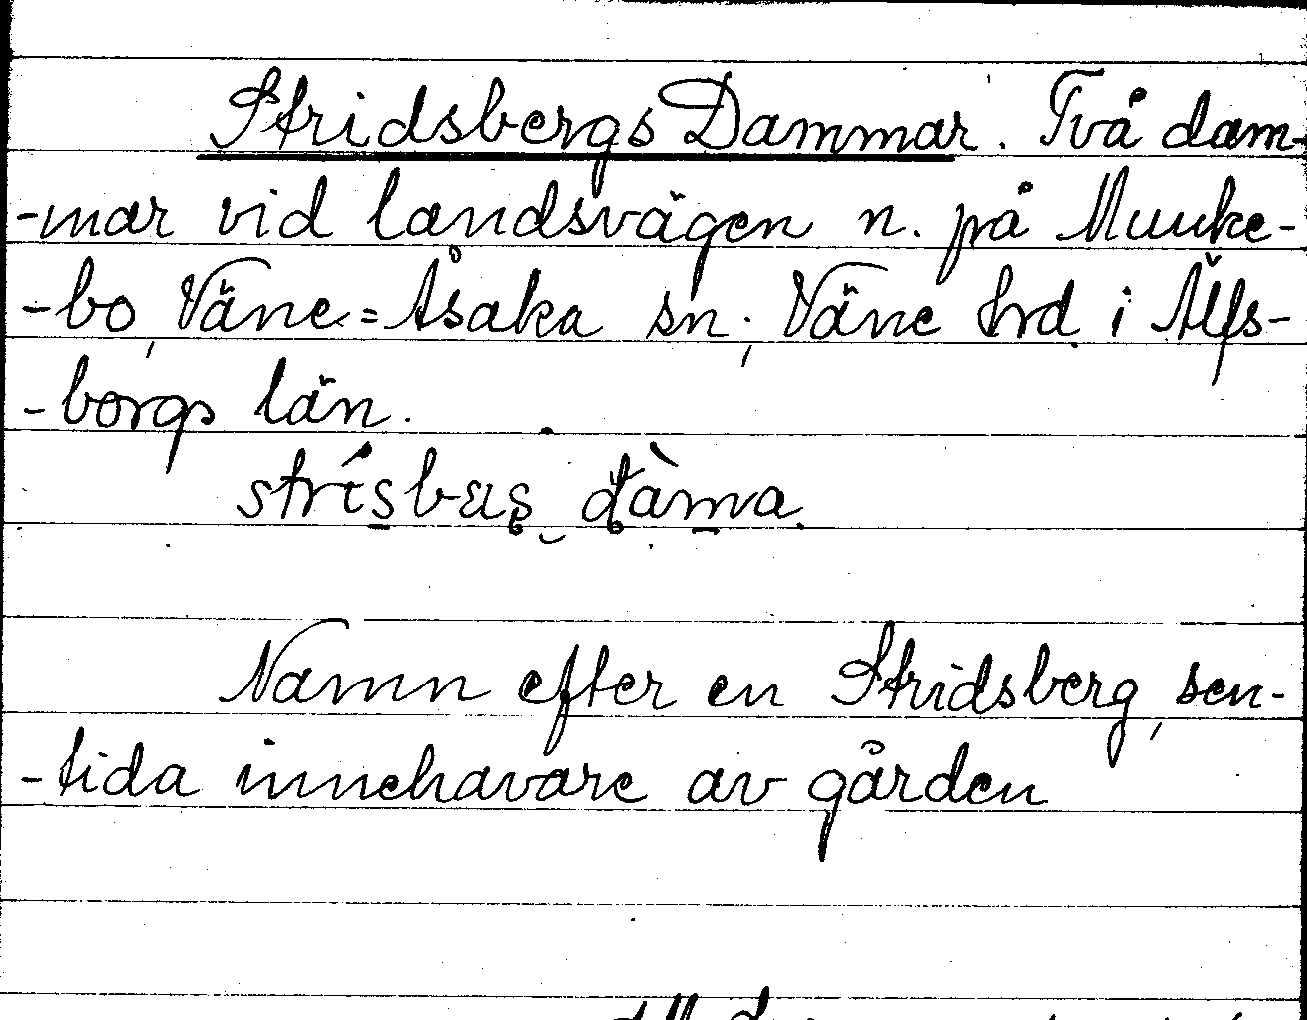 Stridsbergs Dammar. Två dam-
-mar vid landsvägen n. på Munke-
-bo, Väne=Åsaka sn, Väne hrd. i Älfs-
-borgs län.
Namn efter en Stridsberg, sen-
-tida innehavare av gården